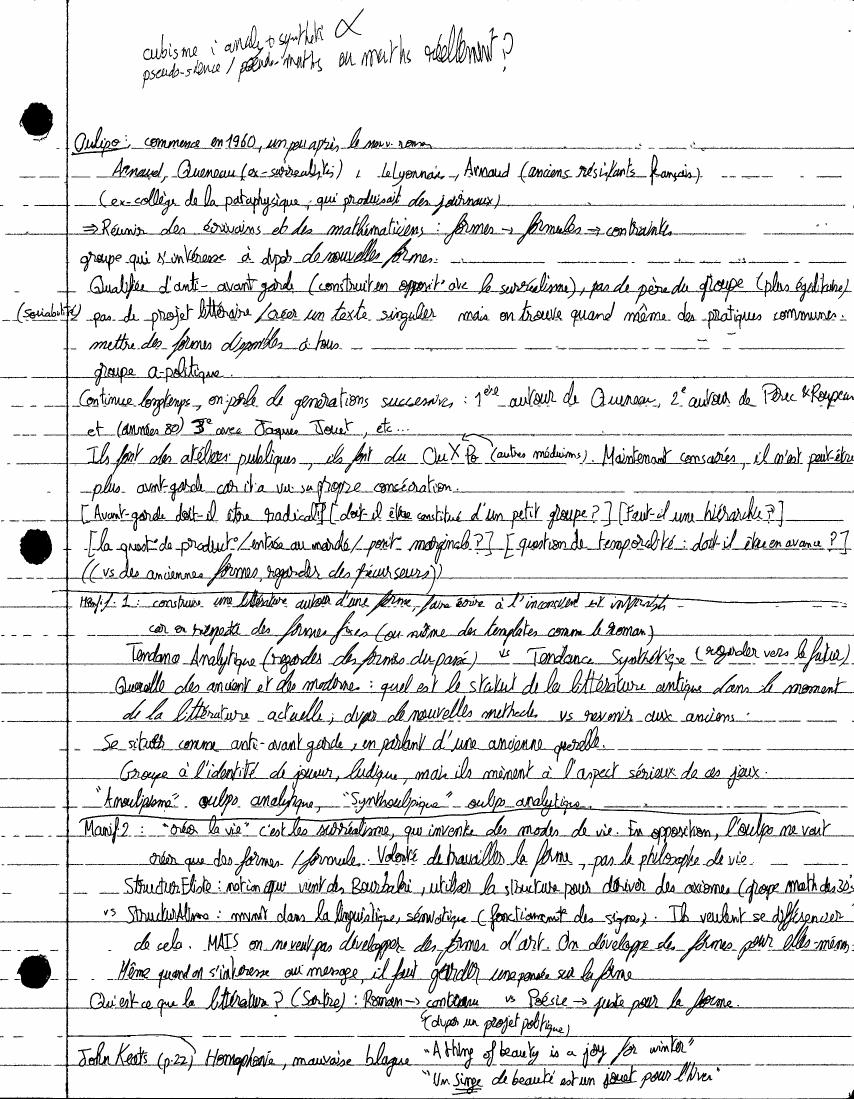 cubisme : analy + synthéti ∝
pseudo-science / pseudo-maths ou maths réellement?
Oulipo : commence en 1960, un peu après le nouv. roman
Arnaud, Queneau (ex-surréalistes), LeLyonnais, Arnaud (anciens résistants français)
(ex-collège de la pataphysique, qui produisait des journaux)
⇒ Réunir des écrivains et des mathématiciens : formes → formules → contraintes
groupe qui s'intéresse à dvper de nouvelles formes.
Qualifiée d'anti-avant garde (construit en opposit° avc le surréalisme), pas de père du groupe (plus égalitaire)
(sociabilité) pas de projet littéraire / créer un texte singulier mais on trouve quand même des pratiques communes.
mettre des formes disponibles à tous
groupe a-politique.
Continue longtemps, on parle de générations successives : 1ère autour de Queneau, 2e autour de Perec & Roubeau
et (années 80) 3e avec Jacques Jouet, etc...
Ils font des ateliers publiques, ils font du OuXPo (autres médiums). Maintenant consacrés, il n'est peut-être
plus avnt-garde car il a vu sa propre consécration.
[Avant-garde doit-il être radical?] [doit-il être constitué d'un petit groupe?] [Faut-il une hiérarchie?]
[la quest° de product°/entrée au marché/ posit° marginale?] [question de temporalité : doit-il être en avance?]
((vs des anciennes formes, regarder des précurseurs))
Manif. 1 : construire une littérature autour d'une forme, faire écrire à l'inconscient est
car on des formes fixes (ou même des templates comme le roman)
Tendance Analytique (regarder des formes du passé) vs Tendance Synthétique (regarder vers le futur)
Querelle des anciens et des modernes : quel est le statut de la littérature antique dans le moment
de la littérature actuelle; dvper de nouvelles méthodes vs revenir aux anciens.
Se situer comme anti-avant garde, en parlant d'une ancienne querelle.
Groupe à l'identité de joueur, ludique, mais ils mènent à l'aspect sérieux de ces jeux.
"Anoulipisme" oulipo analytique, "Synthoulipique" oulipo analytique
Manif 2 : "créer la vie" c'est les surréalisme, qui invente des modes de vie. En opposition, l'oulipo ne veut
créer que des formes / formule. Volonté de travailler la forme, pas le philosophe de vie.
StructurEliste : notion que vient des Bourbaki, utiliser la structure pour dériver des axiomes (groupe math des 30's
vs StructurAlisme : dans la linguistique, sémiotique (fonctionnemt des signes). Ils veulent se différencier
de cela. MAIS on ne veut pas développer des formes d'art. On développe des formes pour elles-mêm.
Même quand on s'intéresse au message, il faut garder une pensée sur la forme
Qu'est-ce que la littérature? (Sartre) : Roman → contenu vs Poésie → juste pour la forme.
(dvper un projet politique)
John Keats (p.22) Homophonie, mauvaise blague "A thing of beauty is a joy for winter"
"Un Singe de beauté est un jouet pour l'hiver"